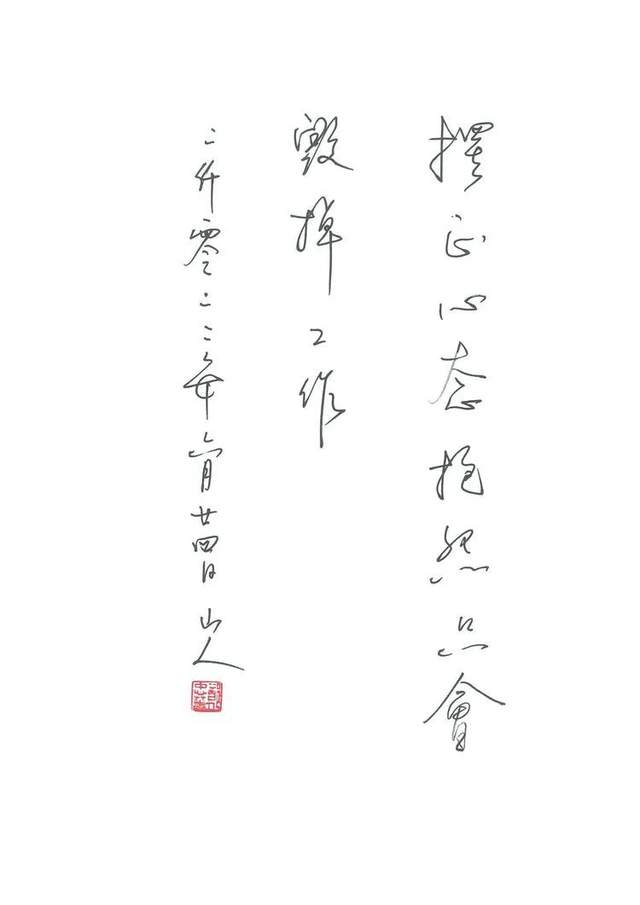 摆正心态抱怨只會
毁掉工作
二仟零二二年六月廿四日 山人